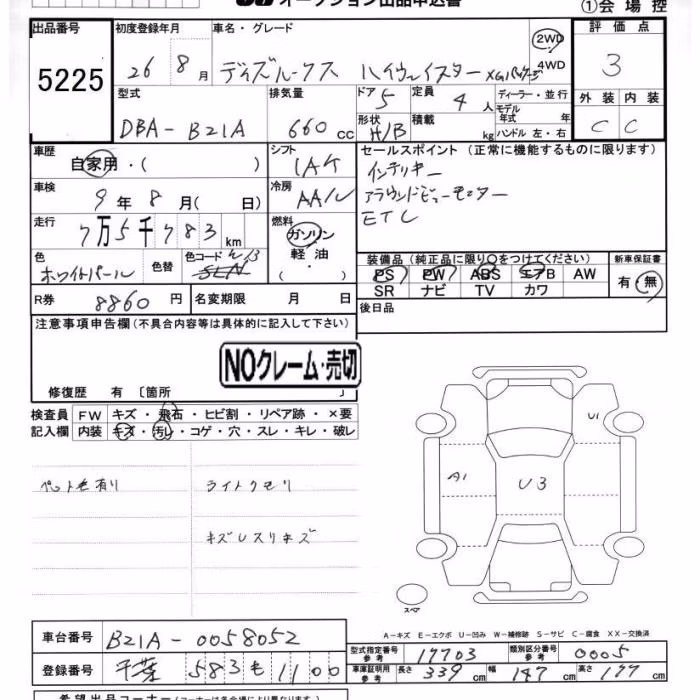 オークション出品申込書
①会場控
出品番号 5225
初度登録年月 26 8月
車名・グレード デイズルークス ハイウェイスター XGパッケージ 2WD 4WD
評価点 3
型式 DBA-B21A
排気量 660 cc
ドア 5
形状 H/B
定員 4 人
積載 kg
ディーラー・並行
モデル年式 年
ハンドル 左・右
外装 内装
C C
車歴 自家用・( )
シフト IAケ
セールスポイント (正常に機能するものに限ります)
インテリキー
アラウンドビューモニター
ETC
車検 9年 8月( 日)
冷房 AA/C
走行 7万5千783 km
燃料 ガソリン 軽油・( )
色 ホワイトパール
色替
色コード
装備品 (純正品に限り○をつけてください)
PS PW ABS エアB AW
SR ナビ TV カワ
新車保証書 有・無
R券 8860 円
名変期限 月 日
後日品
注意事項申告欄 (不具合内容等は具体的に記入して下さい)
NOクレーム・売切
修復歴 有 〔箇所 〕
検査員記入欄
FW キズ・飛石・ヒビ割・リペア跡・×要
内装 キズ・汚レ・コゲ・穴・スレ・キレ・破レ
ペット毛有り ライトクモリ
キズUスリキズ
U1
A1 U3
スペア
A-キズ E-エクボ U-凹み W-補修跡 S-サビ C-腐食 XX-交換済
車台番号 B21A-0058052
登録番号 千葉 583 も 1100
型式指定番号 参考 17703
類別区分番号 参考 0005
車庫証明用 参考 長さ 339 cm 幅 147 cm 高さ 177 cm
希望出品コーナー (コーナーは各会場により異なります)